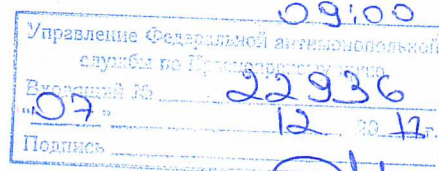 09:00
Управление Федеральной антимонопольной
службы по Красноярскому краю
Входящий № 22936
"07" 12 20 17г.
Подпись